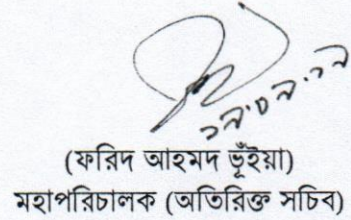 ১৯.০৯.১৯
(ফরিদ আহমদ ভূঁইয়া)
মহাপরিচালক (অতিরিক্ত সচিব)